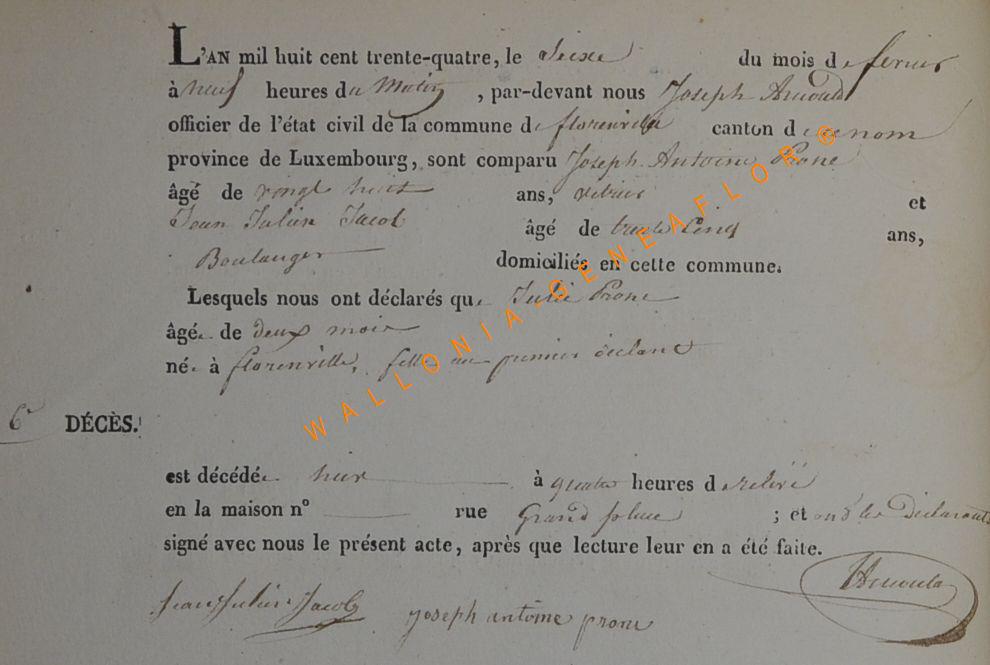 L'AN mil huit cent trente-quatre, le Seize du mois de fevrier
à neuf heures du Matin, par-devant nous Joseph Arnould
officier de l'état civil de la commune de florenville canton de ce nom
province de Luxembourg, sont comparu Joseph Antoine Prone
âgé de vingt huit ans, et
Jean Julien Jacob âgé de trente Cinq ans,
Boulanger domiciliés en cette commune.
Lesquels nous ont déclarés que Julie Prone
âgée de deux mois
née à florenville, fille au premier déclarant
6e DÉCÈS.
est décédée hier à quatre heures de
en la maison n° rue Grand place ; et ont les Déclarants
signé avec nous le présent acte, après que lecture leur en a été faite.
Jean Julien Jacob joseph antoine prone Arnould
WALLONIA-GENEAFLOR©